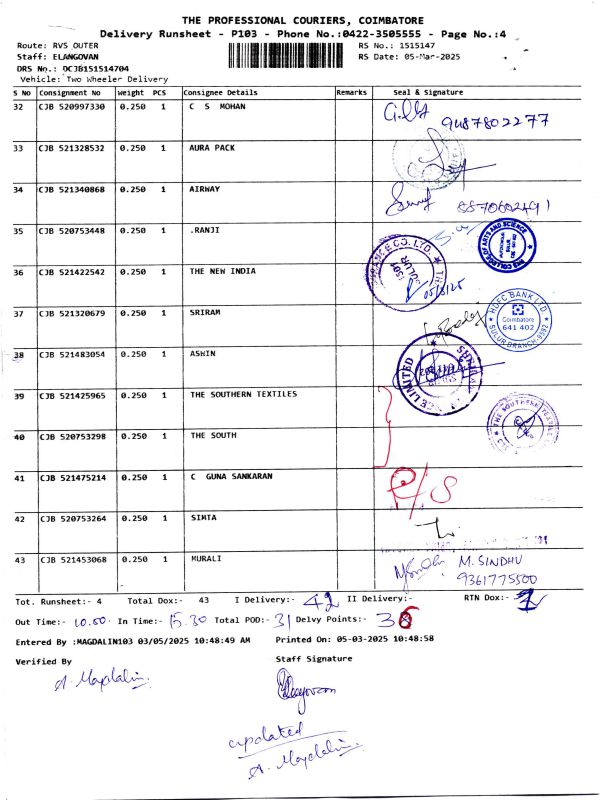 THE PROFESSIONAL COURIERS, COIMBATORE
Delivery Runsheet - P103 - Phone No.:0422-3505555 - Page No.:4
Route: RVS OUTER RS No.: 1515147
Staff: ELANGOVAN RS Date: 05-Mar-2025
DRS No.: OCJB151514704
Vehicle: Two Wheeler Delivery
S No Consignment No Weight PCS Consignee Details Remarks Seal & Signature
32 CJB 520997330 0.250 1 C S MOHAN 9487802277
33 CJB 521328532 0.250 1 AURA PACK
34 CJB 521340868 0.250 1 AIRWAY
35 CJB 520753448 0.250 1 .RANJI
RVS COLLEGE OF ARTS AND SCIENCE
36 CJB 521422542 0.250 1 THE NEW INDIA 05/3/25
37 CJB 521320679 0.250 1 SRIRAM
HDFC BANK LTD.
Coimbatore
641 402
SULUR BRANCH
38 CJB 521483054 0.250 1 ASHIN
39 CJB 521425965 0.250 1 THE SOUTHERN TEXTILES
40 CJB 520753298 0.250 1 THE SOUTH
41 CJB 521475214 0.250 1 C GUNA SANKARAN R/S
42 CJB 520753264 0.250 1 SIMTA
43 CJB 521453068 0.250 1 MURALI M. SINDHU
9361775500
Tot. Runsheet:- 4 Total Dox:- 43 I Delivery:- 42 II Delivery:- RTN Dox:- 1
Out Time:- 10.00 In Time:- 15.30 Total POD:- 31 Delvy Points:- 36
Entered By :MAGDALIN103 03/05/2025 10:48:49 AM Printed On: 05-03-2025 10:48:58
Verified By Staff Signature
A. Magdalin.
Elangovan
updated
A. Magdalin.